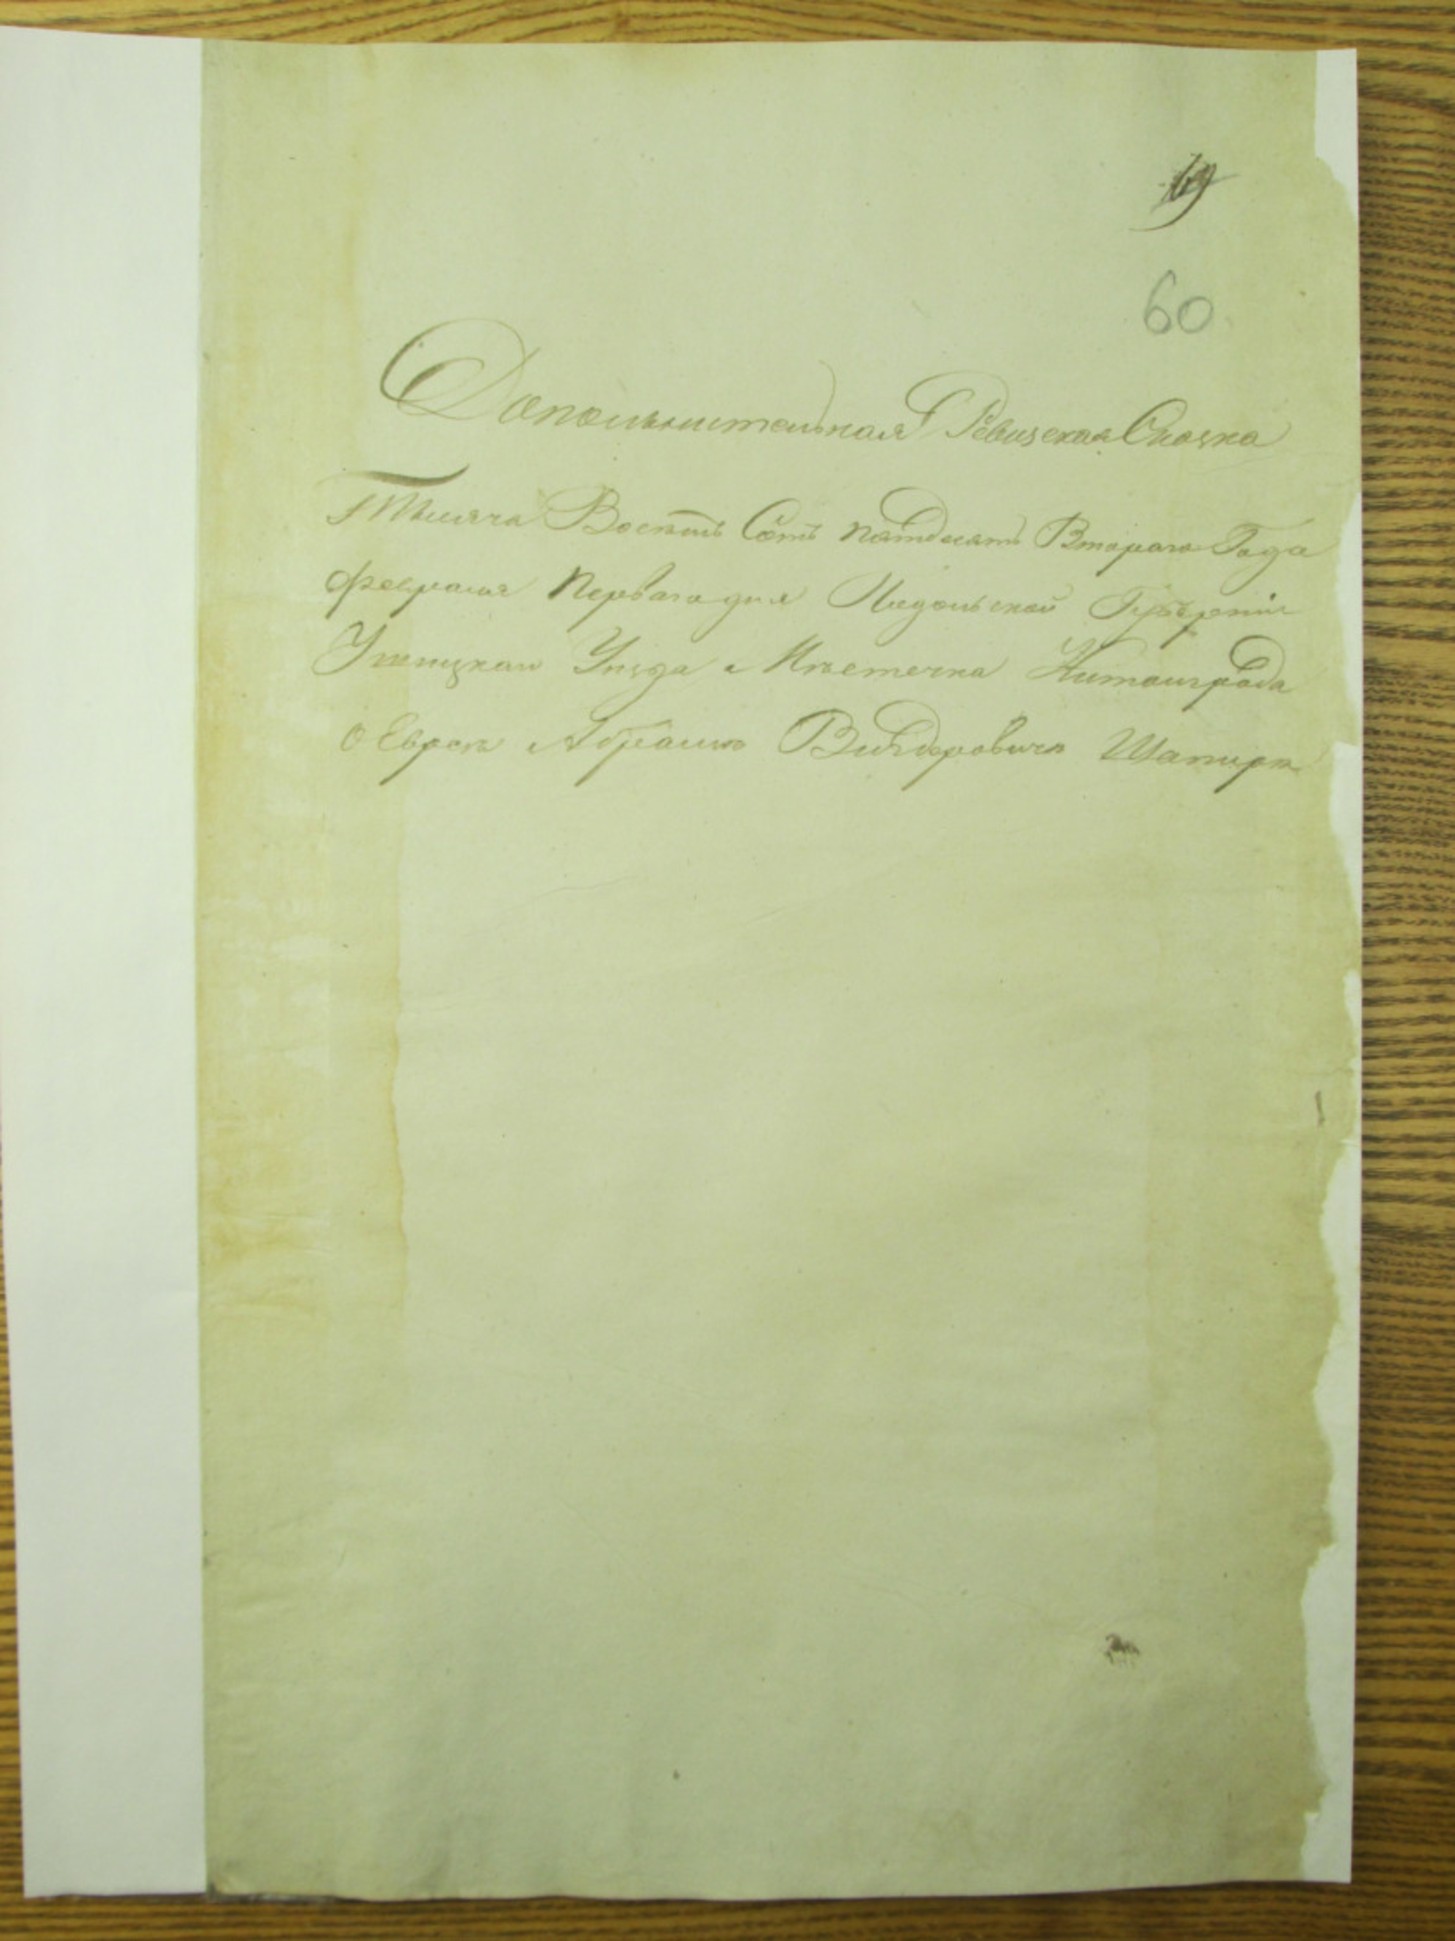 69
60
Дополнительная Ревизская Сказка
Тысяча Восемь Сотъ пятдесятъ Втораго Года
февраля Перваго дня Подольской Губерніи
Ушицкаго Уѣзда Мѣстечка Китайгрода
о Евреѣ Абрамѣ Шапирѣ